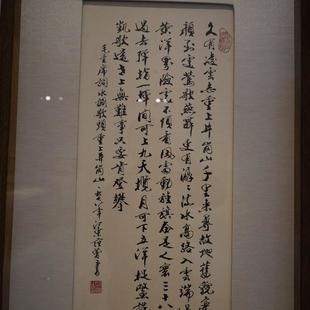 久有凌雲志重上井岡山千里來尋故地舊貌變
顏到處鶯歌燕舞更有潺々流水高路入雲端過
黃洋界險處不須看風雷動旌旗奮是人寰三十八
過去彈指一揮間可上九天攬月可下五洋捉鱉
凱歌還世上無難事只要肯登攀
毛主席詞水調歌頭重上井岡山